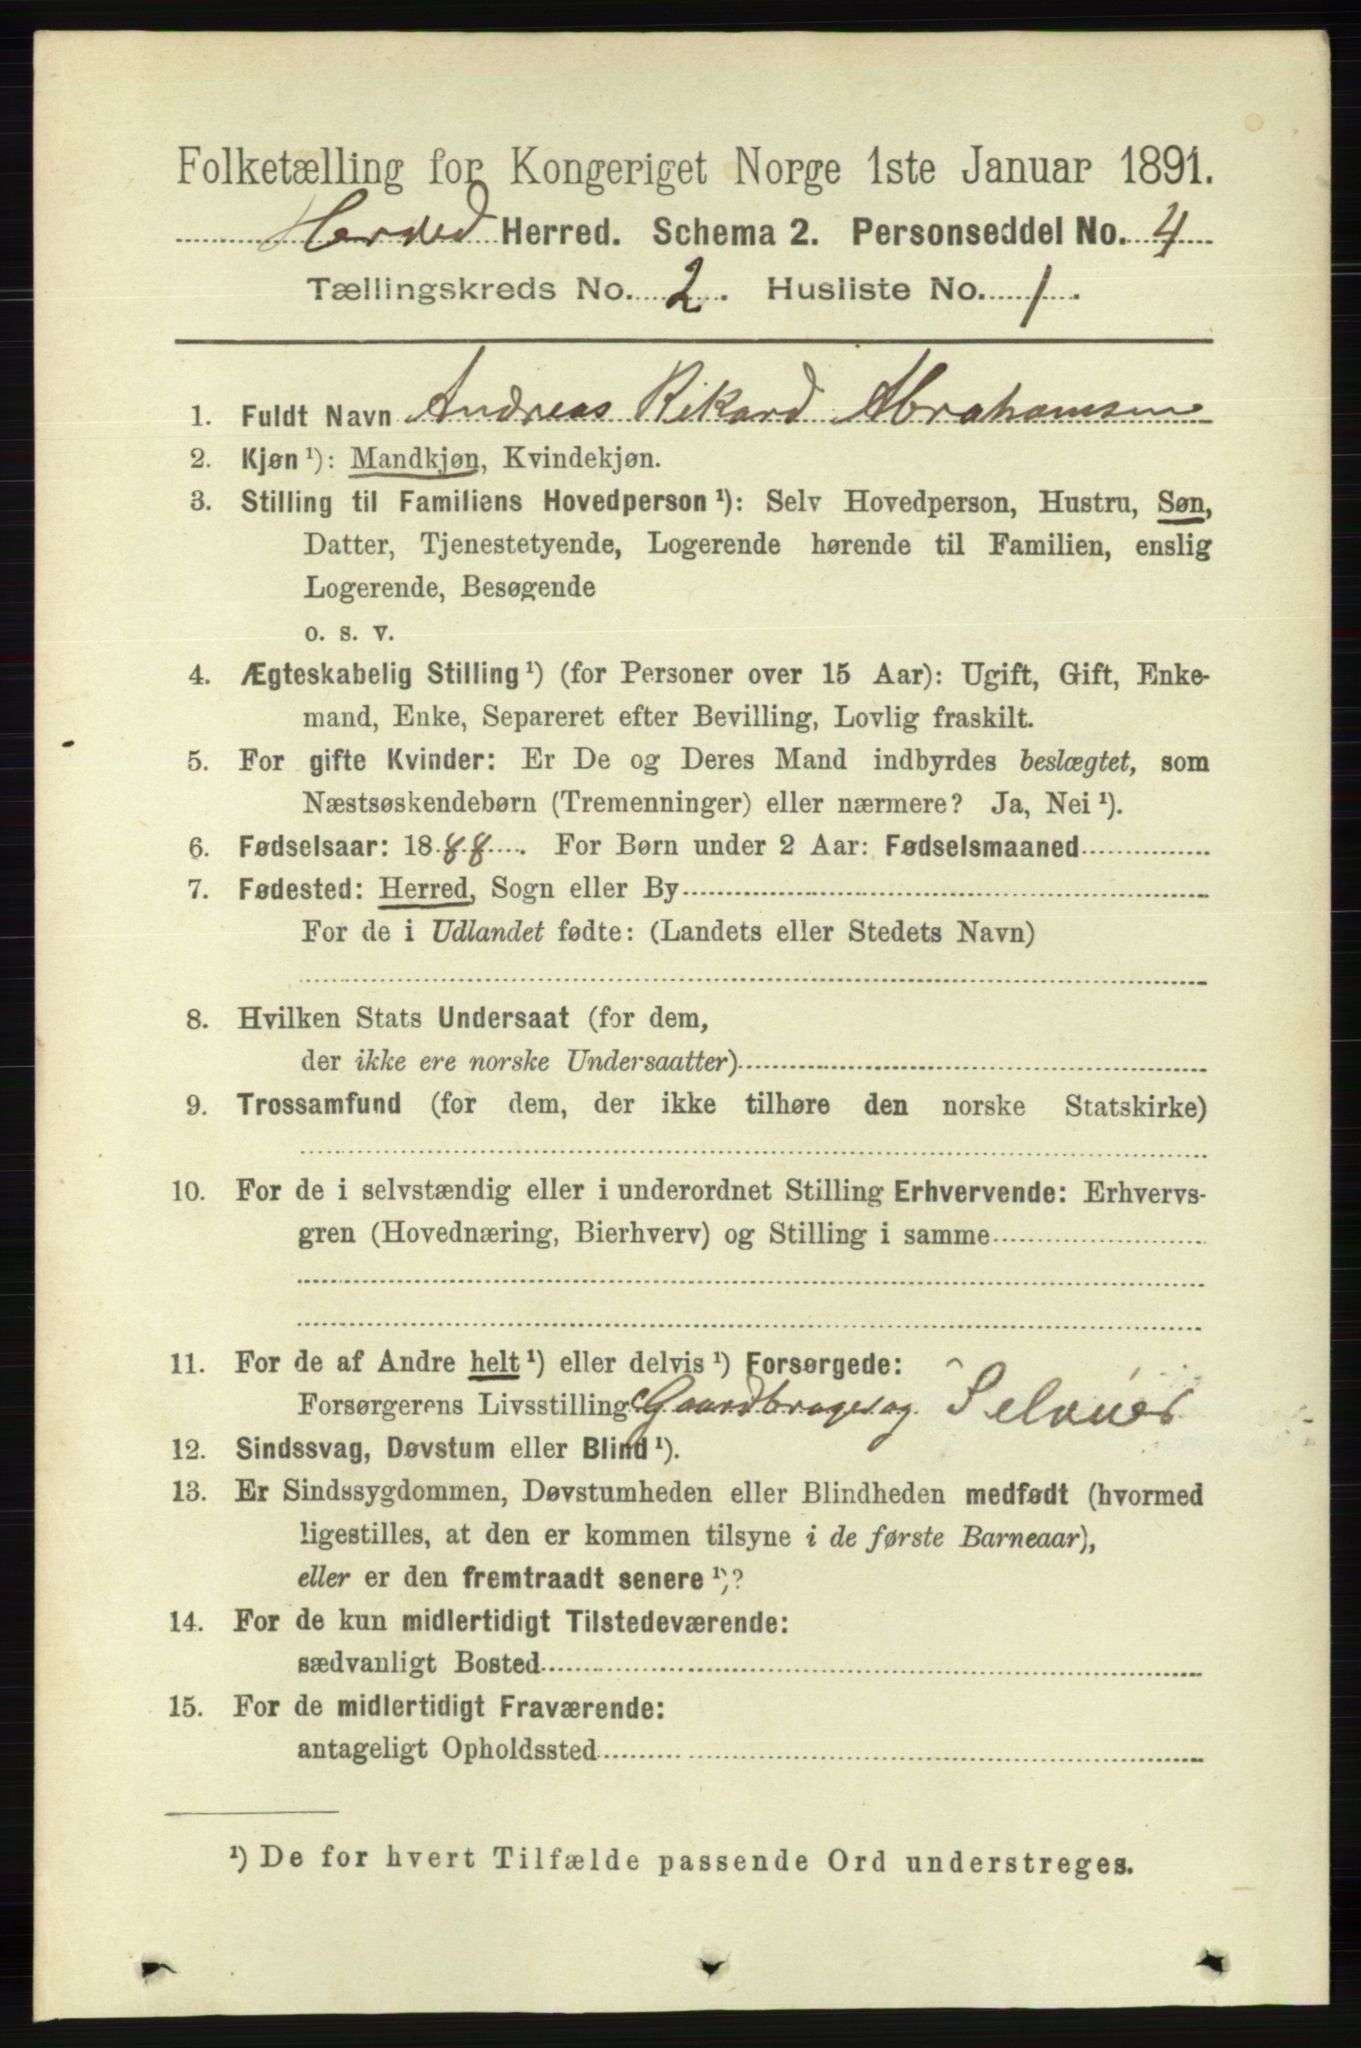 Folketælling for Kongeriget Norge 1ste Januar 1891.
Herred. Schema 2. Personseddel No. 4
Tællingskreds No. 2. Husliste No. 1.
1. Fuldt Navn Andreas Rikard Abrahamsen
2. Kjøn ¹): Mandkjøn, Kvindekjøn.
3. Stilling til Familiens Hovedperson ¹): Selv Hovedperson, Hustru, Søn,
Datter, Tjenestetyende, Logerende hørende til Familien, enslig
Logerende, Besøgende
o. s. v.
4. Ægteskabelig Stilling ¹) (for Personer over 15 Aar): Ugift, Gift, Enke-
mand, Enke, Separeret efter Bevilling, Lovlig fraskilt.
5. For gifte Kvinder: Er De og Deres Mand indbyrdes beslægtet, som
Næstsøskendebørn (Tremenninger) eller nærmere? Ja, Nei ¹).
6. Fødselsaar: 1888. For Børn under 2 Aar: Fødselsmaaned
7. Fødested: Herred, Sogn eller By
For de i Udlandet fødte: (Landets eller Stedets Navn)
8. Hvilken Stats Undersaat (for dem,
der ikke ere norske Undersaatter)
9. Trossamfund (for dem, der ikke tilhøre den norske Statskirke)
10. For de i selvstændig eller i underordnet Stilling Erhvervende: Erhvervs-
gren (Hovednæring, Bierhverv) og Stilling i samme
11. For de af Andre helt ¹) eller delvis ¹) Forsørgede:
Forsørgerens Livsstilling Gaardbruger og
12. Sindssvag, Døvstum eller Blind ¹).
13. Er Sindssygdommen, Døvstumheden eller Blindheden medfødt (hvormed
ligestilles, at den er kommen tilsyne i de første Barneaar),
eller er den fremtraadt senere ¹)?
14. For de kun midlertidigt Tilstedeværende:
sædvanligt Bosted
15. For de midlertidigt Fraværende:
antageligt Opholdssted
¹) De for hvert Tilfælde passende Ord understreges.